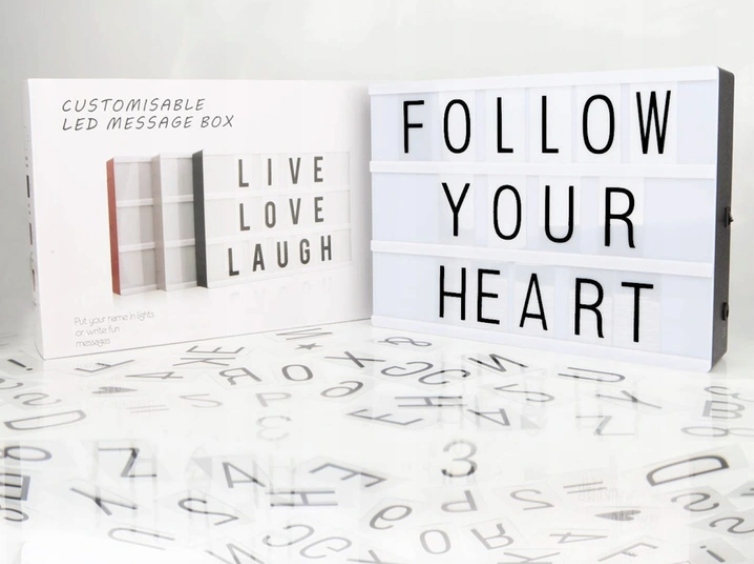 CUSTOMISABLE
LED MESSAGE BOX
LIVE
LOVE
LAUGH
Put your name in lights
or write fun
messages
FOLLOW
YOUR
HEART